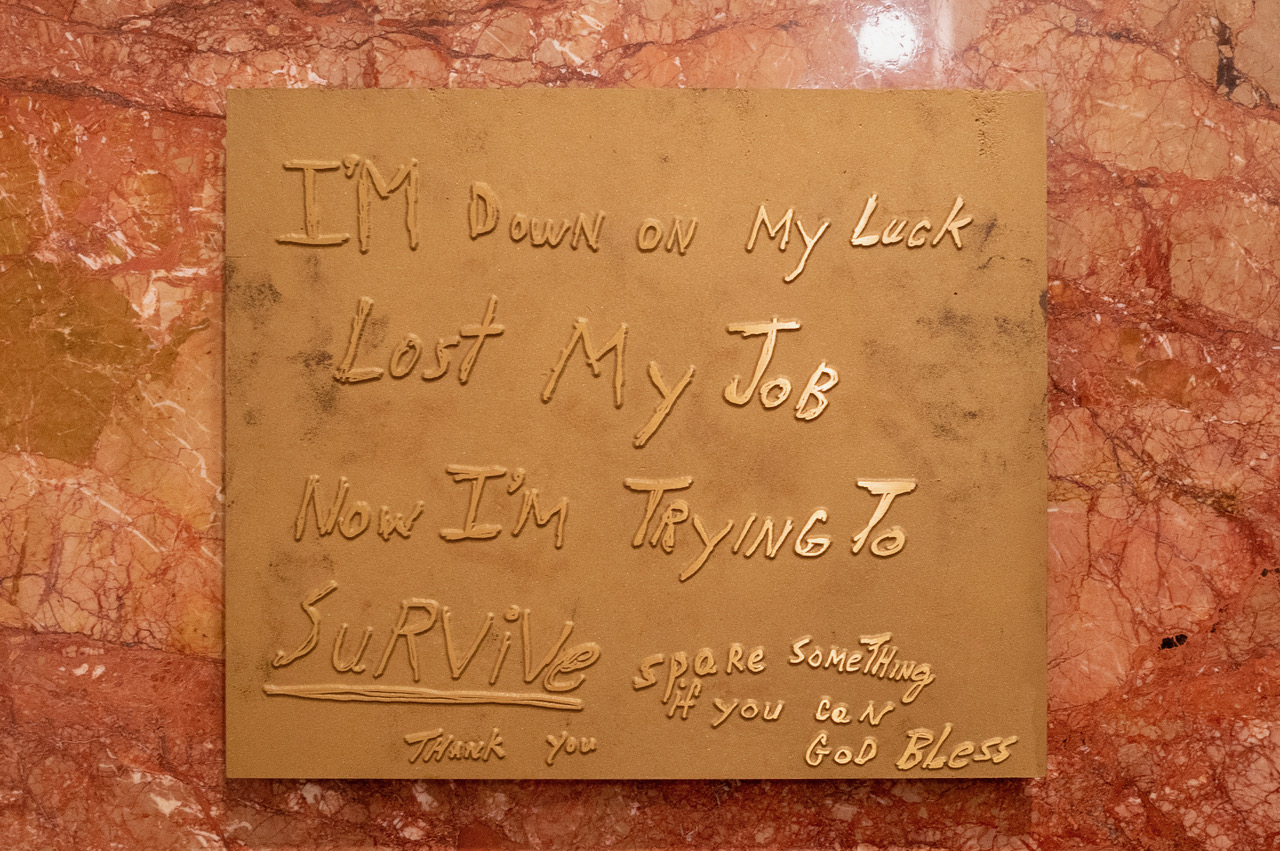 I'M DOWN ON My Luck
Lost My JoB
Now I'M TRyING To
SuRViVe
spaRe SomeTHing
if you can
Thank you
GoD BLess